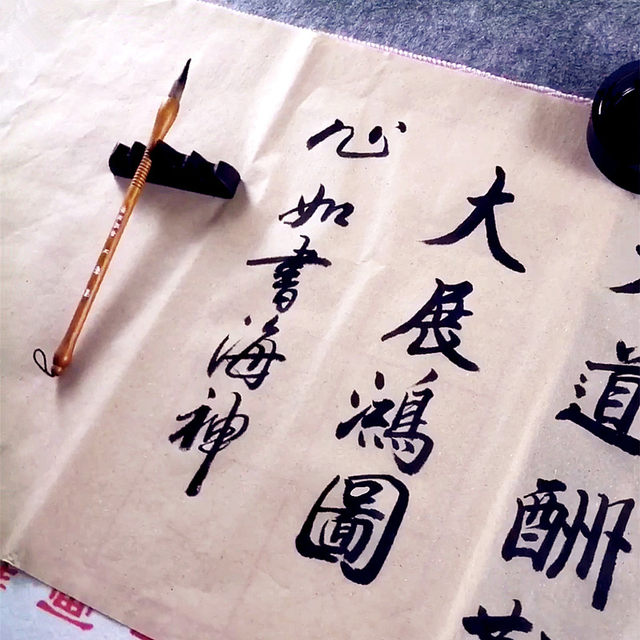 道酬
大展鴻圖
心如書海神